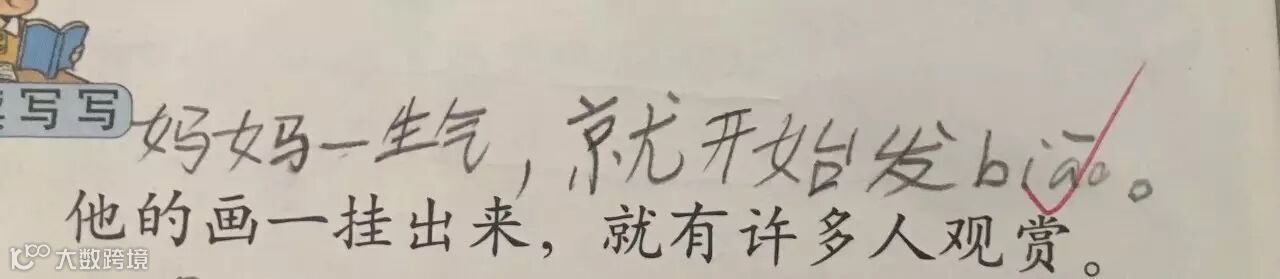 写写
妈妈一生气，就开始发biāo。
他的画一挂出来，就有许多人观赏。
大数跨境